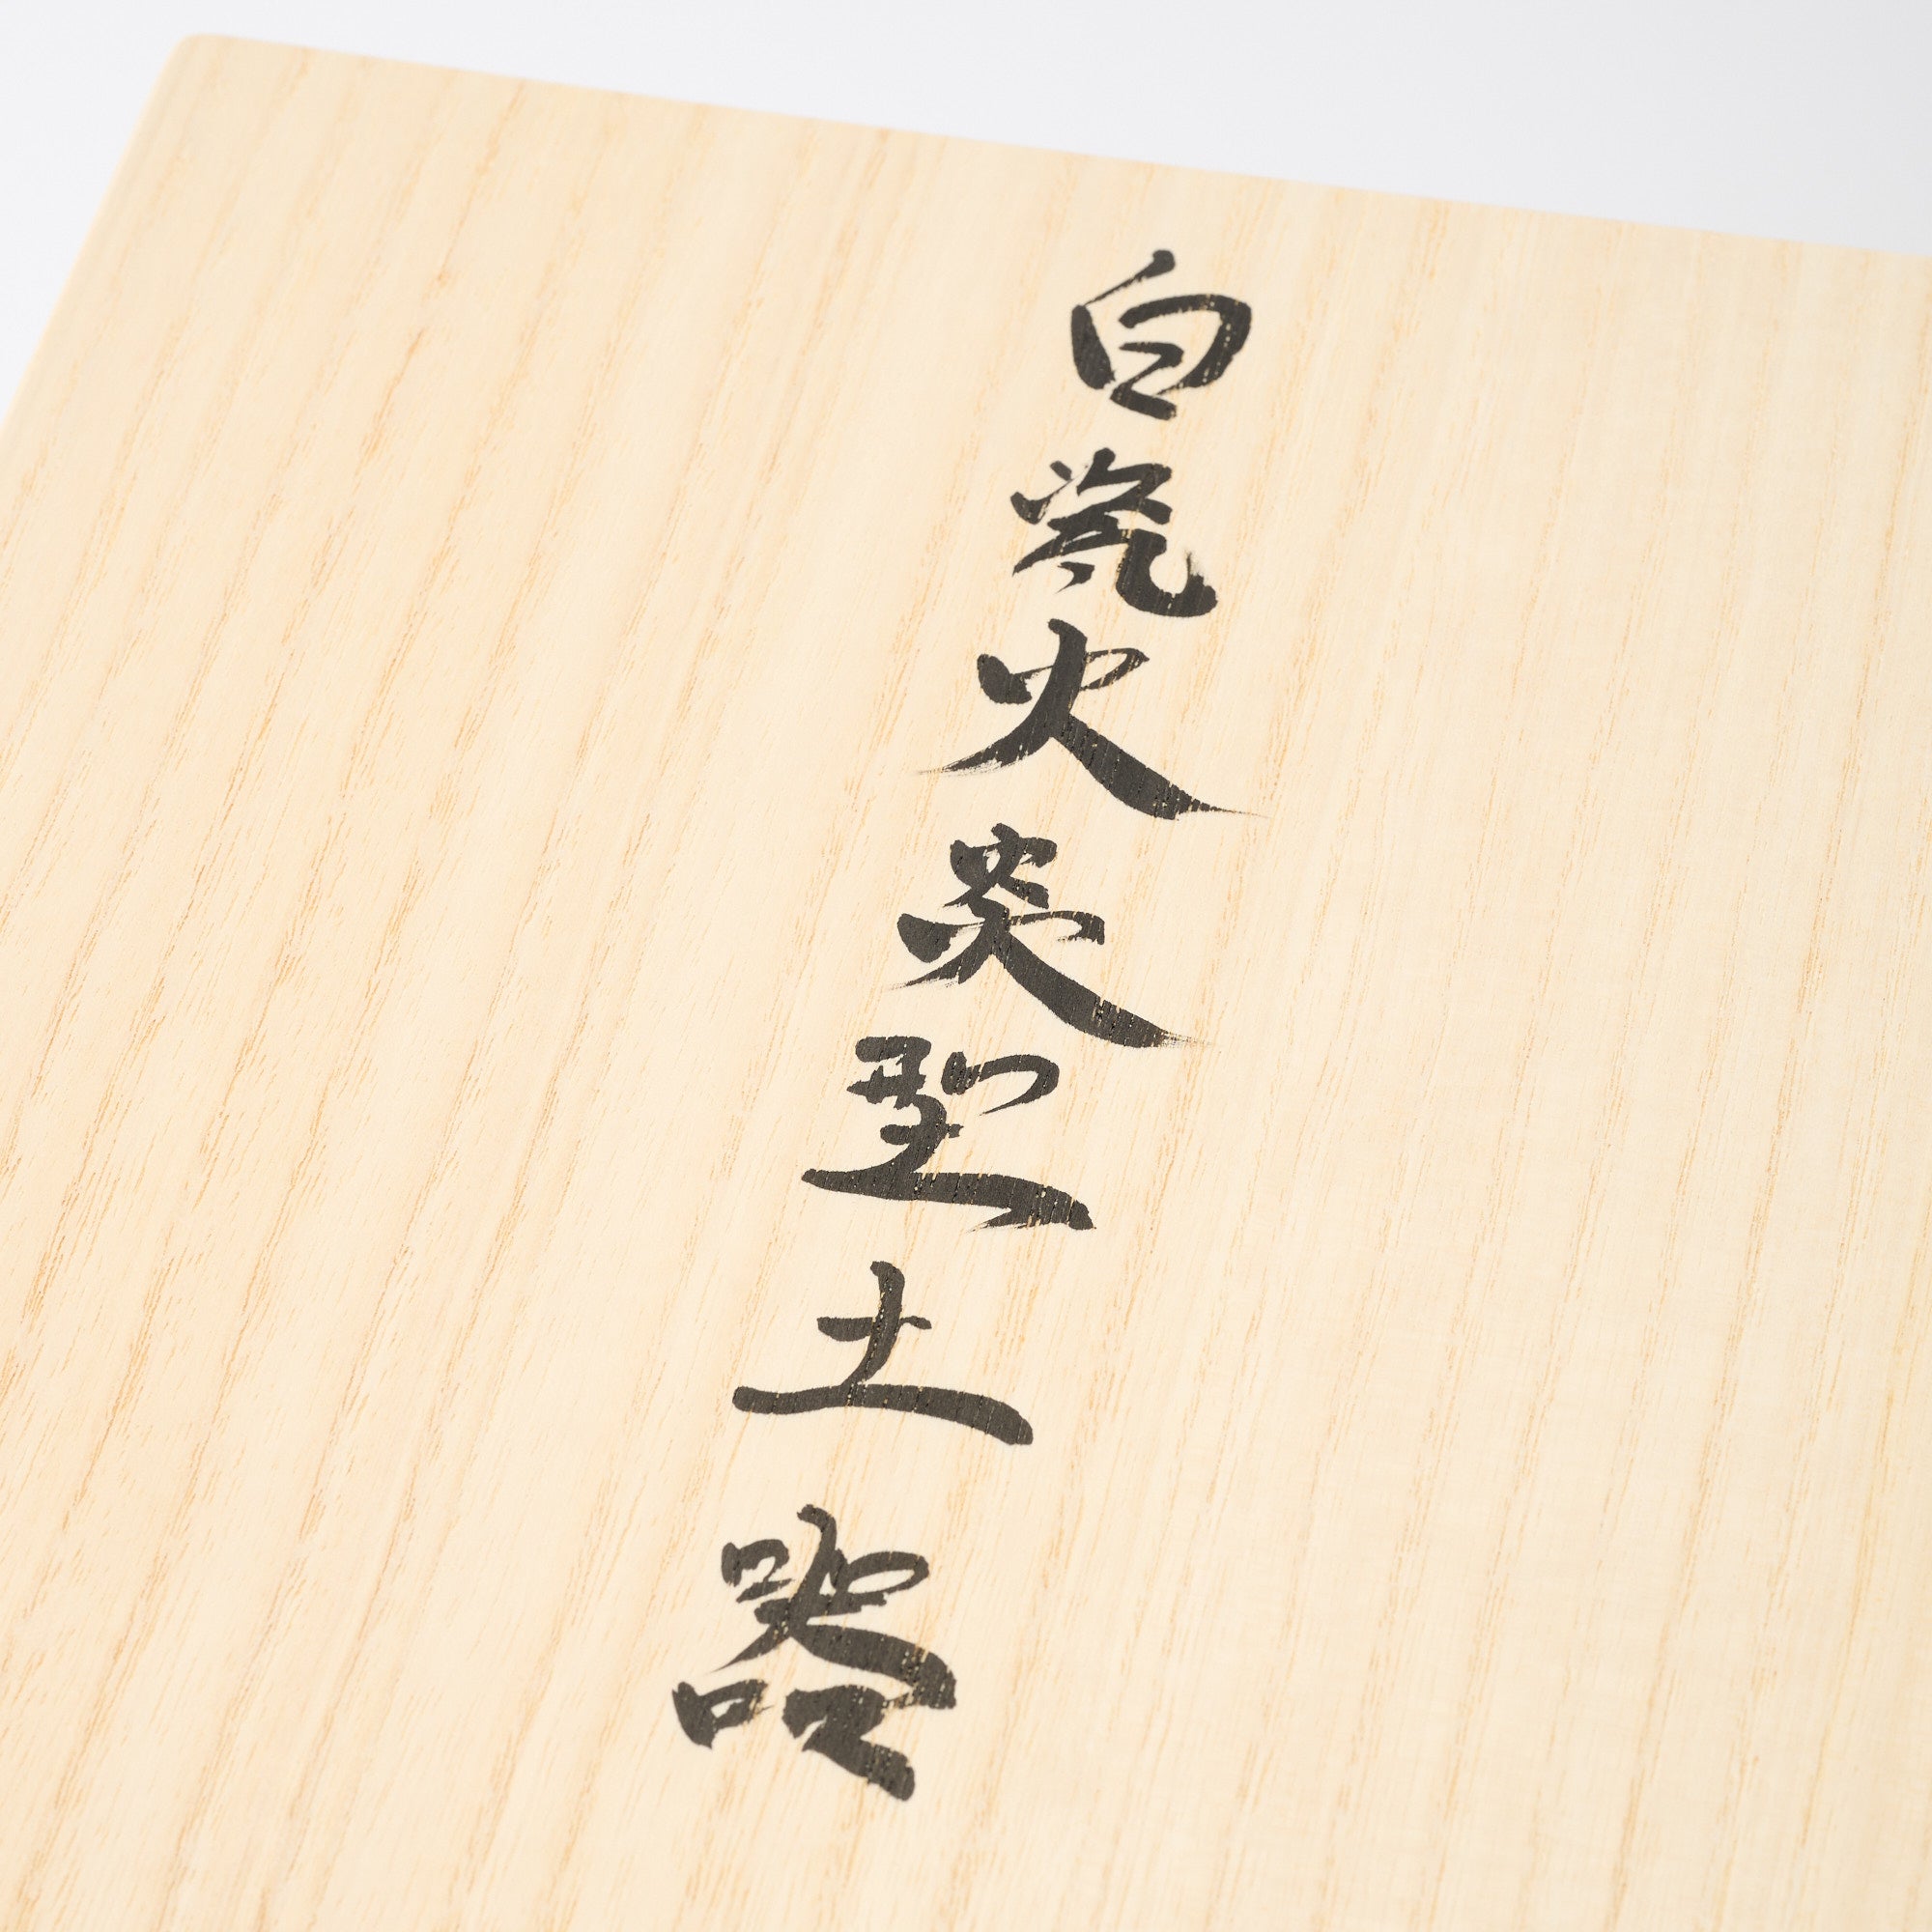 白瓷火炎型土器